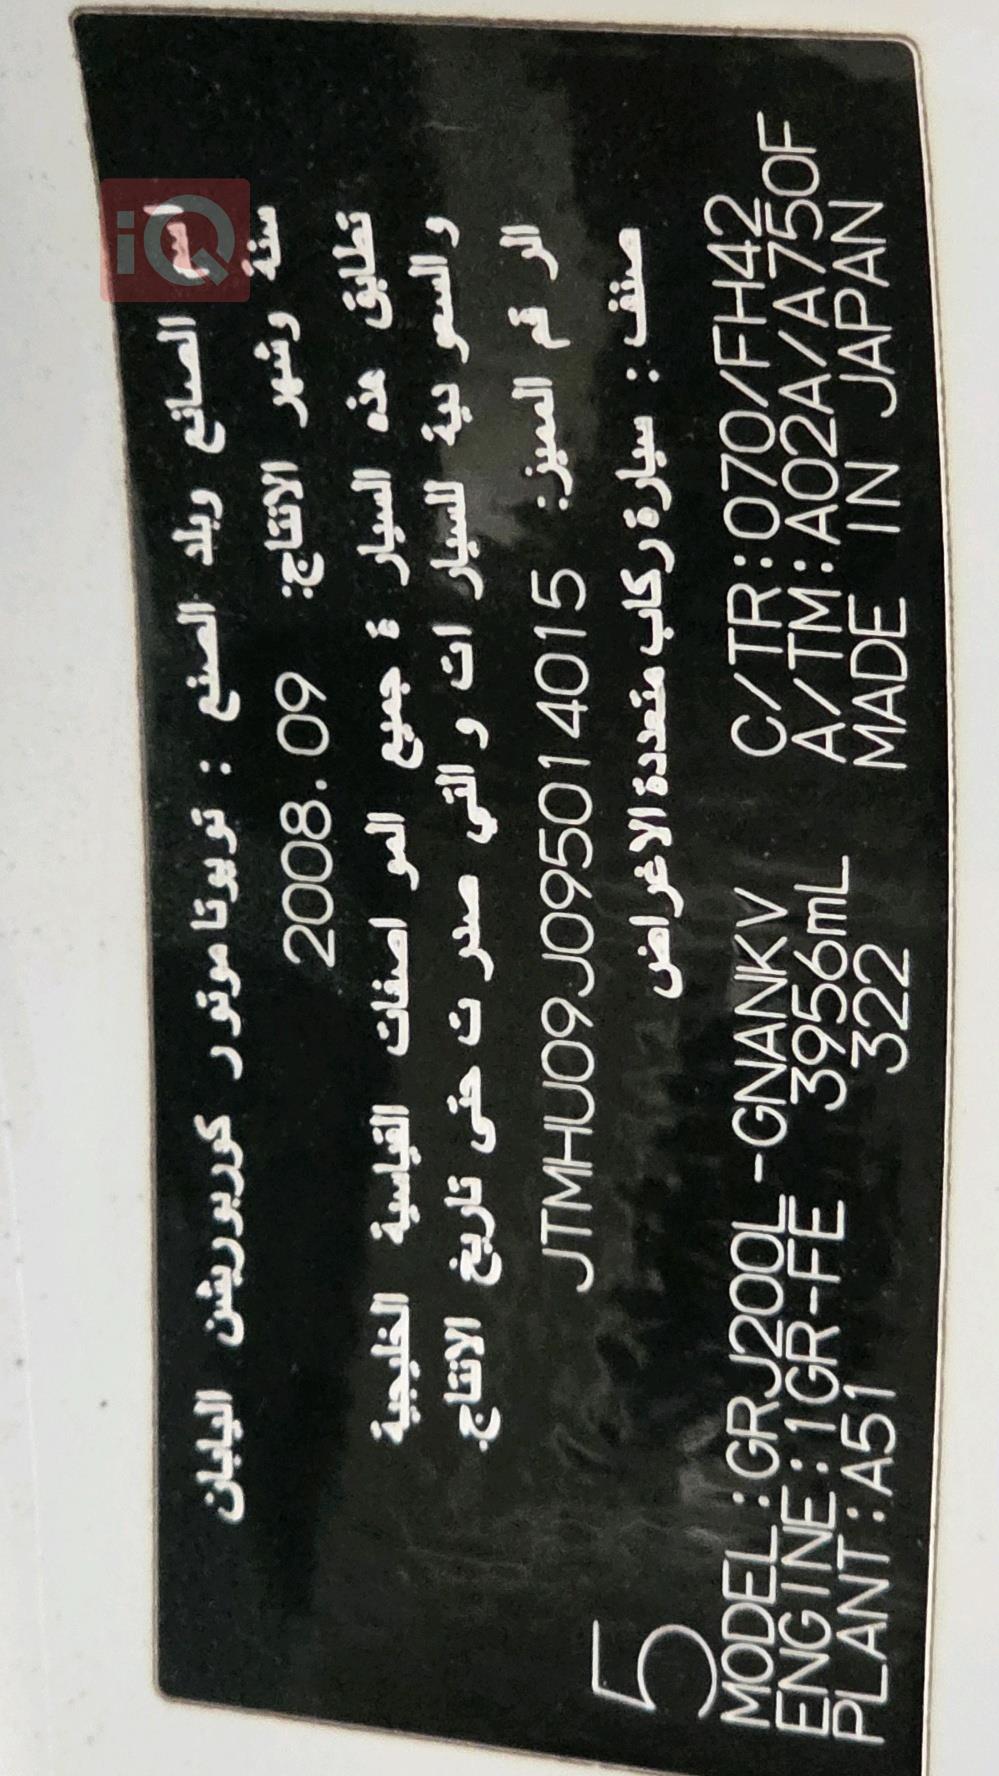 اسم الصانع وبلد الصنع : تويوتا موتور كوربوريشن اليابان
سنة وشهر الانتاج: 2008.09
تطابق هذه السيارة جميع المواصفات القياسية الخليجية
والسعودية للسيارات والتي صدرت حتى تاريخ الانتاج.
الرقم المميز: JTMHU09J095014015
صنف : سيارة ركاب متعددة الاغراض
5
MODEL:GRJ200L-GNANKV C/TR:070/FH42
ENGINE:1GR-FE 3956mL A/TM:A02A/A750F
PLANT:A51 322 MADE IN JAPAN
iQ